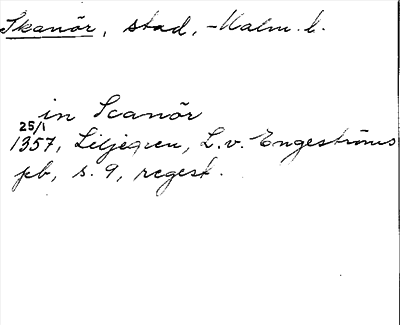 Skanör, stad, Malm. l.
in Scanör
25/1
1357, Liljegren, L. v. Engeströms
pb, s. 9, regest.